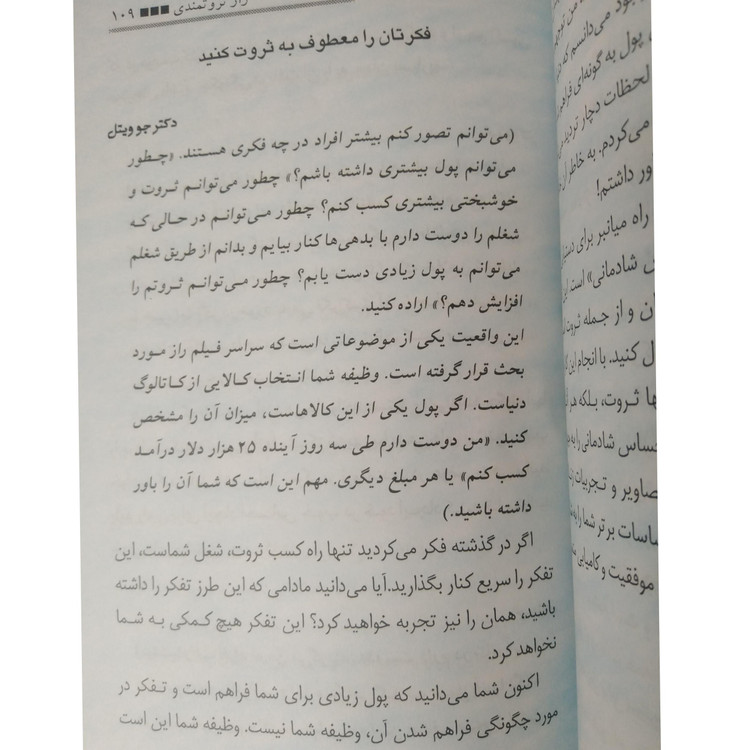 راز ثروتمندی ■■■ ۱۰۹
فکرتان را معطوف به ثروت کنید
دکتر جو ویتل
(می‌توانم تصور کنم بیشتر افراد در چه فکری هستند. «چطور
می‌توانم پول بیشتری داشته باشم؟» چطور می‌توانم ثروت و
خوشبختی بیشتری کسب کنم؟ چطور می‌توانم در حالی که
شغلم را دوست دارم با بدهی‌ها کنار بیایم و بدانم از طریق شغلم
می‌توانم به پول زیادی دست یابم؟ چطور می‌توانم ثروتم را
افزایش دهم؟» اراده کنید.
این واقعیت یکی از موضوعاتی است که سراسر فیلم راز مورد
بحث قرار گرفته است. وظیفه شما انتخاب کالایی از کاتالوگ
دنیاست. اگر پول یکی از این کالاهاست، میزان آن را مشخص
کنید. «من دوست دارم طی سه روز آینده ۲۵ هزار دلار درآمد
کسب کنم» یا هر مبلغ دیگری. مهم این است که شما آن را باور
داشته باشید.)
اگر در گذشته فکر می‌کردید تنها راه کسب ثروت، شغل شماست، این
تفکر را سریع کنار بگذارید.آیا می‌دانید مادامی که این طرز تفکر را داشته
باشید، همان را نیز تجربه خواهید کرد؟ این تفکر هیچ کمکی به شما
نخواهد کرد.
اکنون شما می‌دانید که پول زیادی برای شما فراهم است و تفکر در
مورد چگونگی فراهم شدن آن، وظیفه شما نیست. وظیفه شما این است
می‌دانستم که
پول به گونه‌ای فراهم
لحظات دچار تردید
می‌کردم. به خاطر
داشتم!
راه میانبر برای
شادمانی» است.
و از جمله ثروت
کنید. با انجام این
ثروت، بلکه هر
شادمانی را به
و تجربیات
برتر شما را به
موفقیت و کامیابی